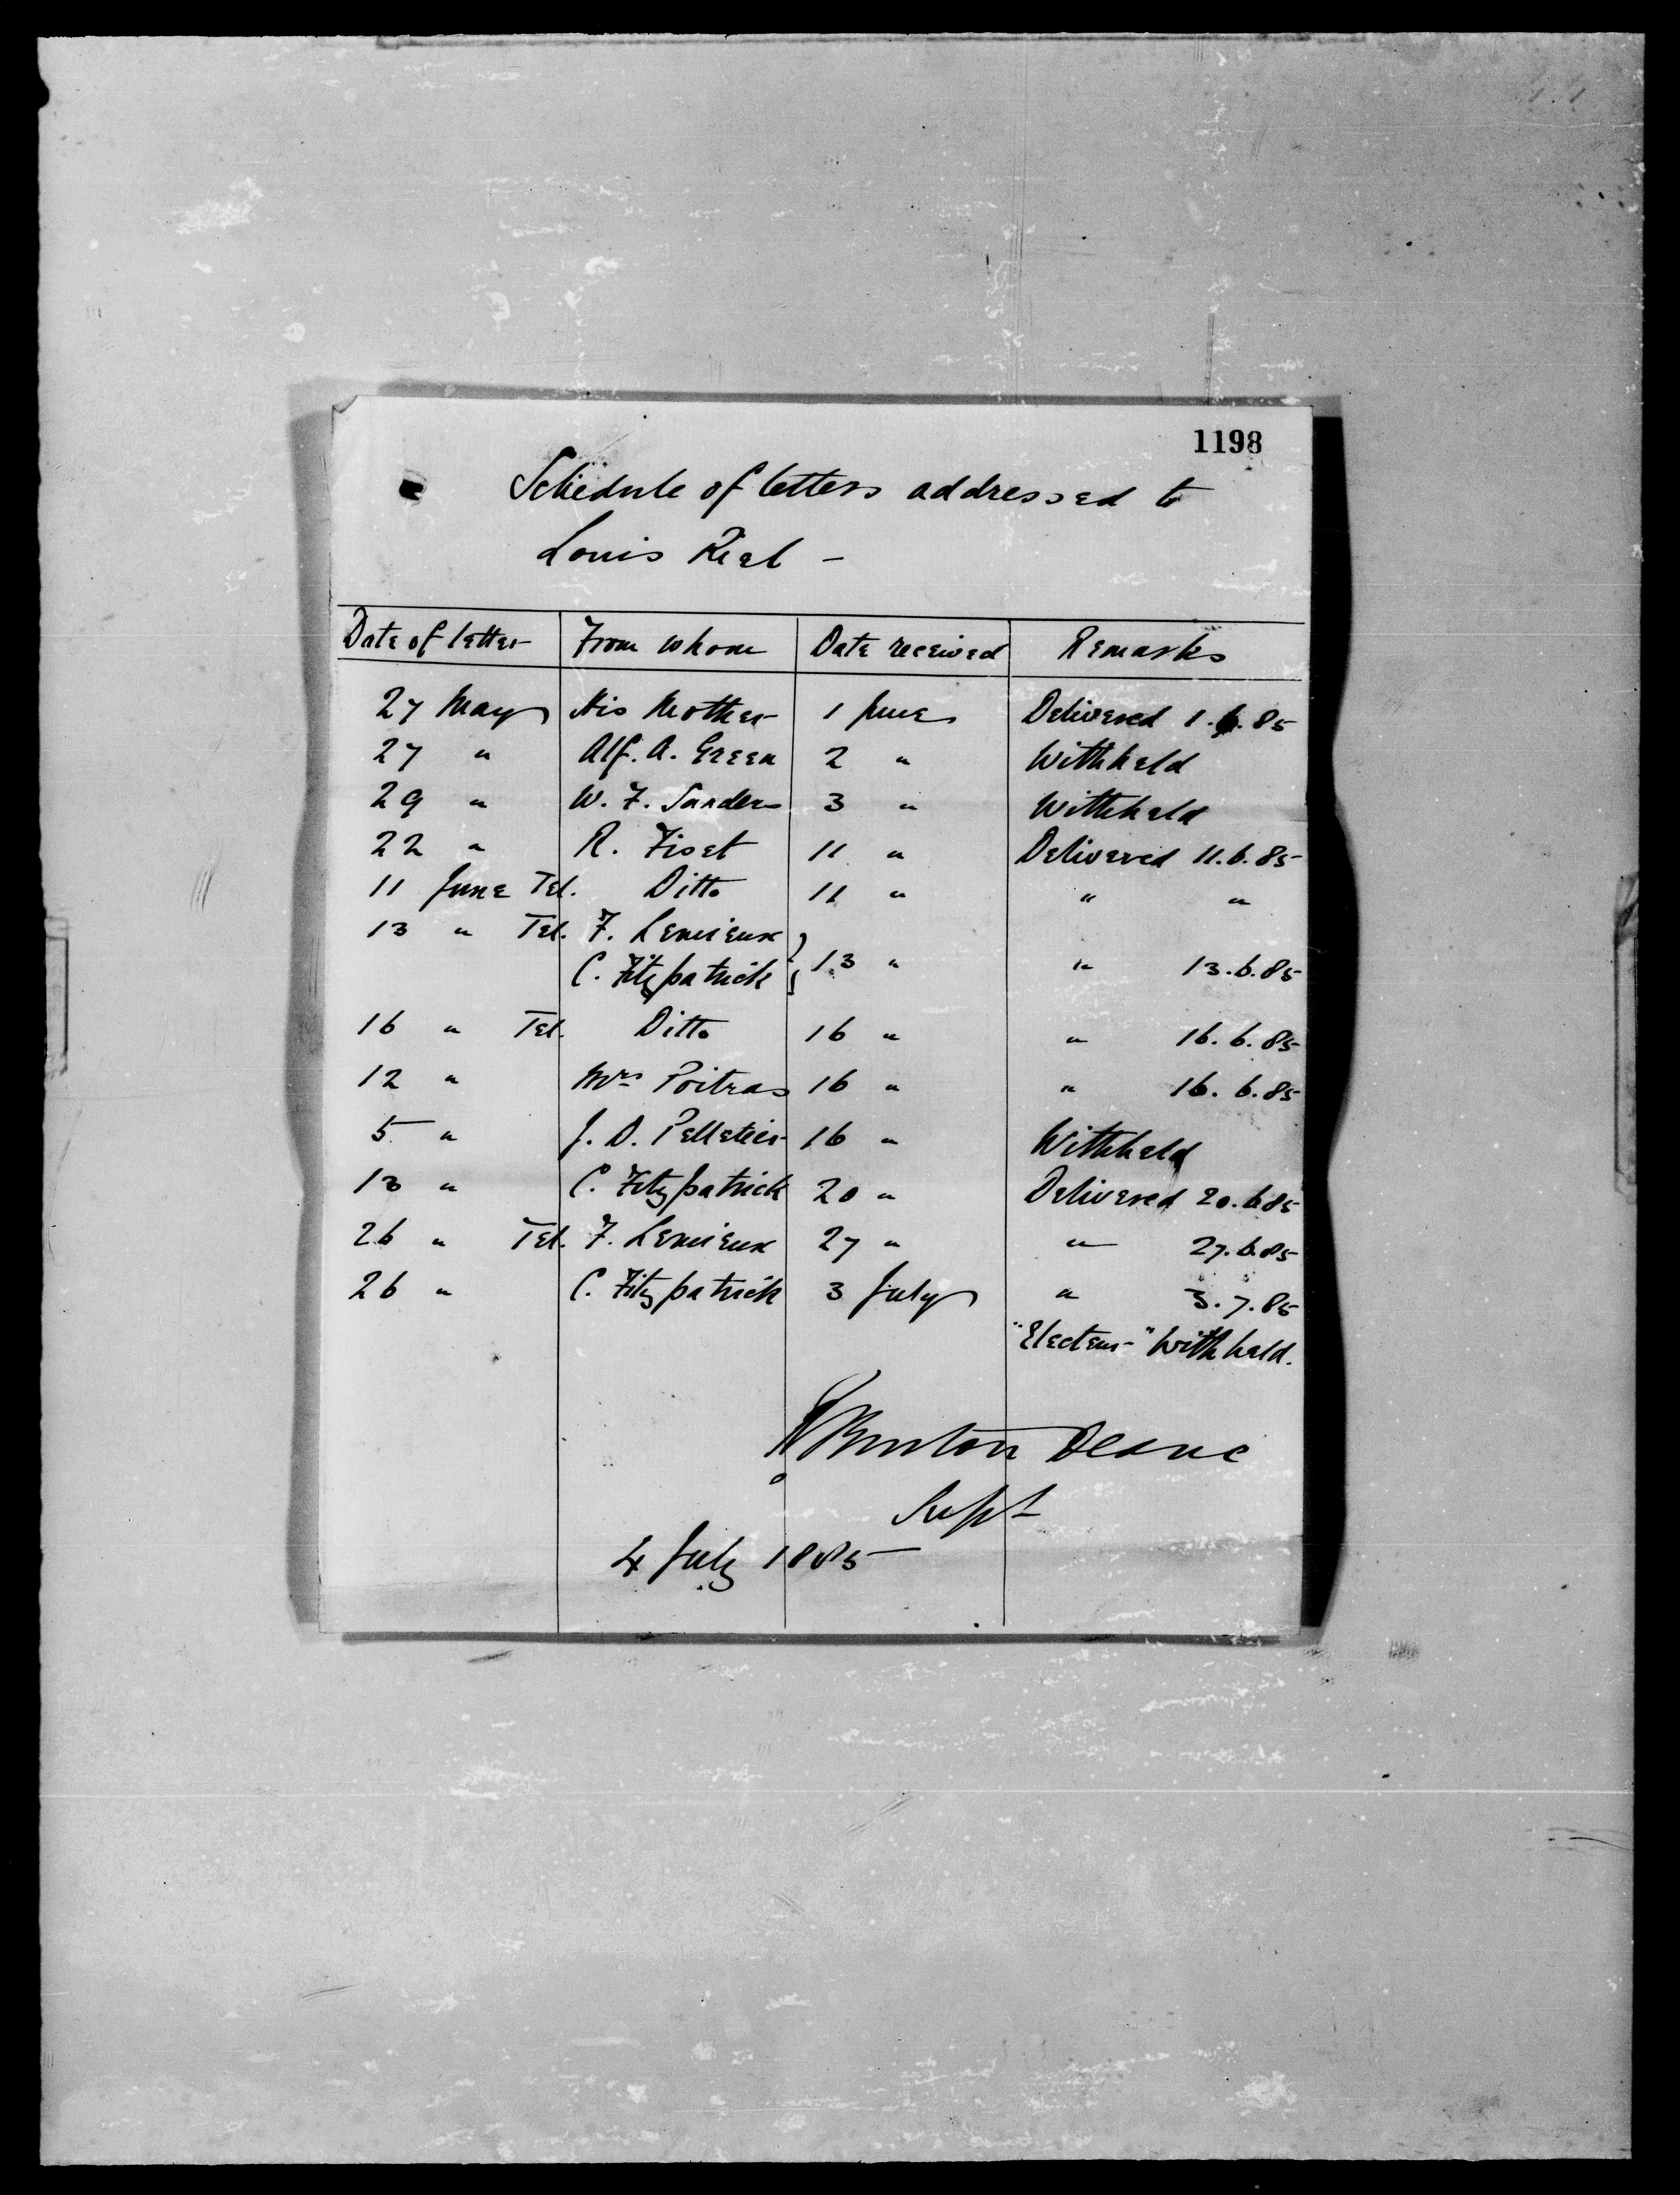 1198
Schedule of letters addressed to
Louis Riel -
Date of letter From whom Date received Remarks
27 May His Mother 1 June Delivered 1.6.85
27 " Alf. A. Green 2 " Withheld
29 " W. F. Sanders 3 " Withheld
22 " R. Fiset 11 " Delivered 11.6.85
11 June Tel. Ditto 11 " " "
13 " Tel. F. Lemieux
C. Fitzpatrick } 13 " " 13.6.85
16 " Tel. Ditto 16 " " 16.6.85
12 " Mrs Poitras 16 " " 16.6.85
5 " J. D. Pelletier 16 " Withheld
13 " C. Fitzpatrick 20 " Delivered 20.6.85
26 " Tel. F. Lemieux 27 " " 27.6.85
26 " C. Fitzpatrick 3 July " 3.7.85
"Electeur" Withheld.
Burton Deane
Supt
4 July 1885